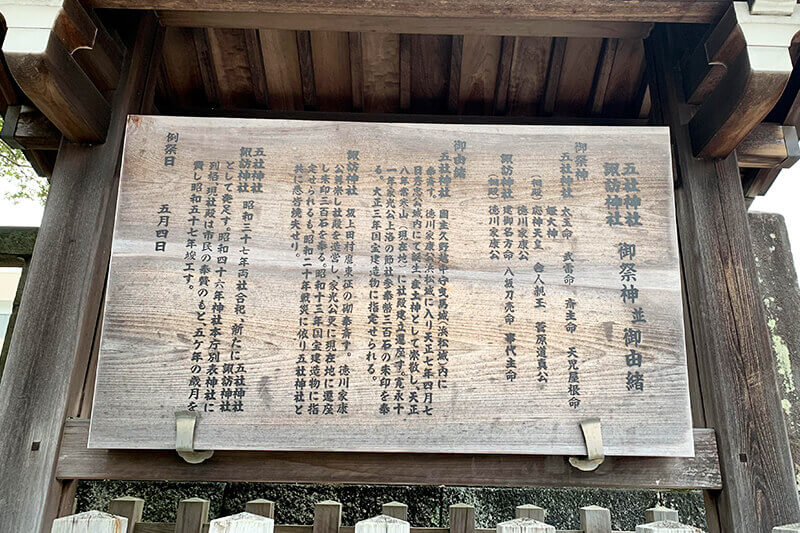 五社神社
諏訪神社 御祭神並御由緒
御祭神
五社神社 太玉命 武雷命 斎主命 天児屋根命
姫大神
(相殿) 応神天皇 舎人親王 菅原道真公
徳川家康公
諏訪神社 建御名方命 八坂刀売命 事代主命
(相殿) 徳川家康公
御由緒
五社神社 国主久野越中守曳馬城(浜松城)内に
奉斎す。徳川家康公浜松城に入り天正七年四月七
日秀忠公城内にて誕生、産土神として崇敬し、天正
八年常寒山(現在地)に社殿建立遷座す。寛永十
一年家光公上洛の節社参奉幣三百石の朱印を奉
る。大正三年国宝建造物に指定せられる。
諏訪神社 坂上田村麿東征の砌奉斎す。徳川家康
公崇敬し社殿を造営し、家光公更に現在地に遷座
し朱印三百石を奉る。昭和十三年国宝建造物に指
定せられるも、昭和二十年戦災に依り五社神社と
共に悉皆焼失せり。
五社神社
諏訪神社 昭和三十七年両社合祀、新たに 五社神社
諏訪神社
として発足す。昭和四十六年神社本庁別表神社に
列格、現社殿は市民の奉賛のもと、五ケ年の歳月を
費し昭和五十七年竣工す。
例祭日 五月四日